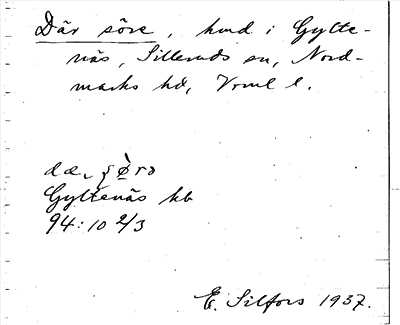 Där söre, hmd i Gylte-
näs, Silleruds sn, Nord-
marks hd, Vrml l.
Gyltenäs hb
94:10 2/3
E. Silfors 1937.